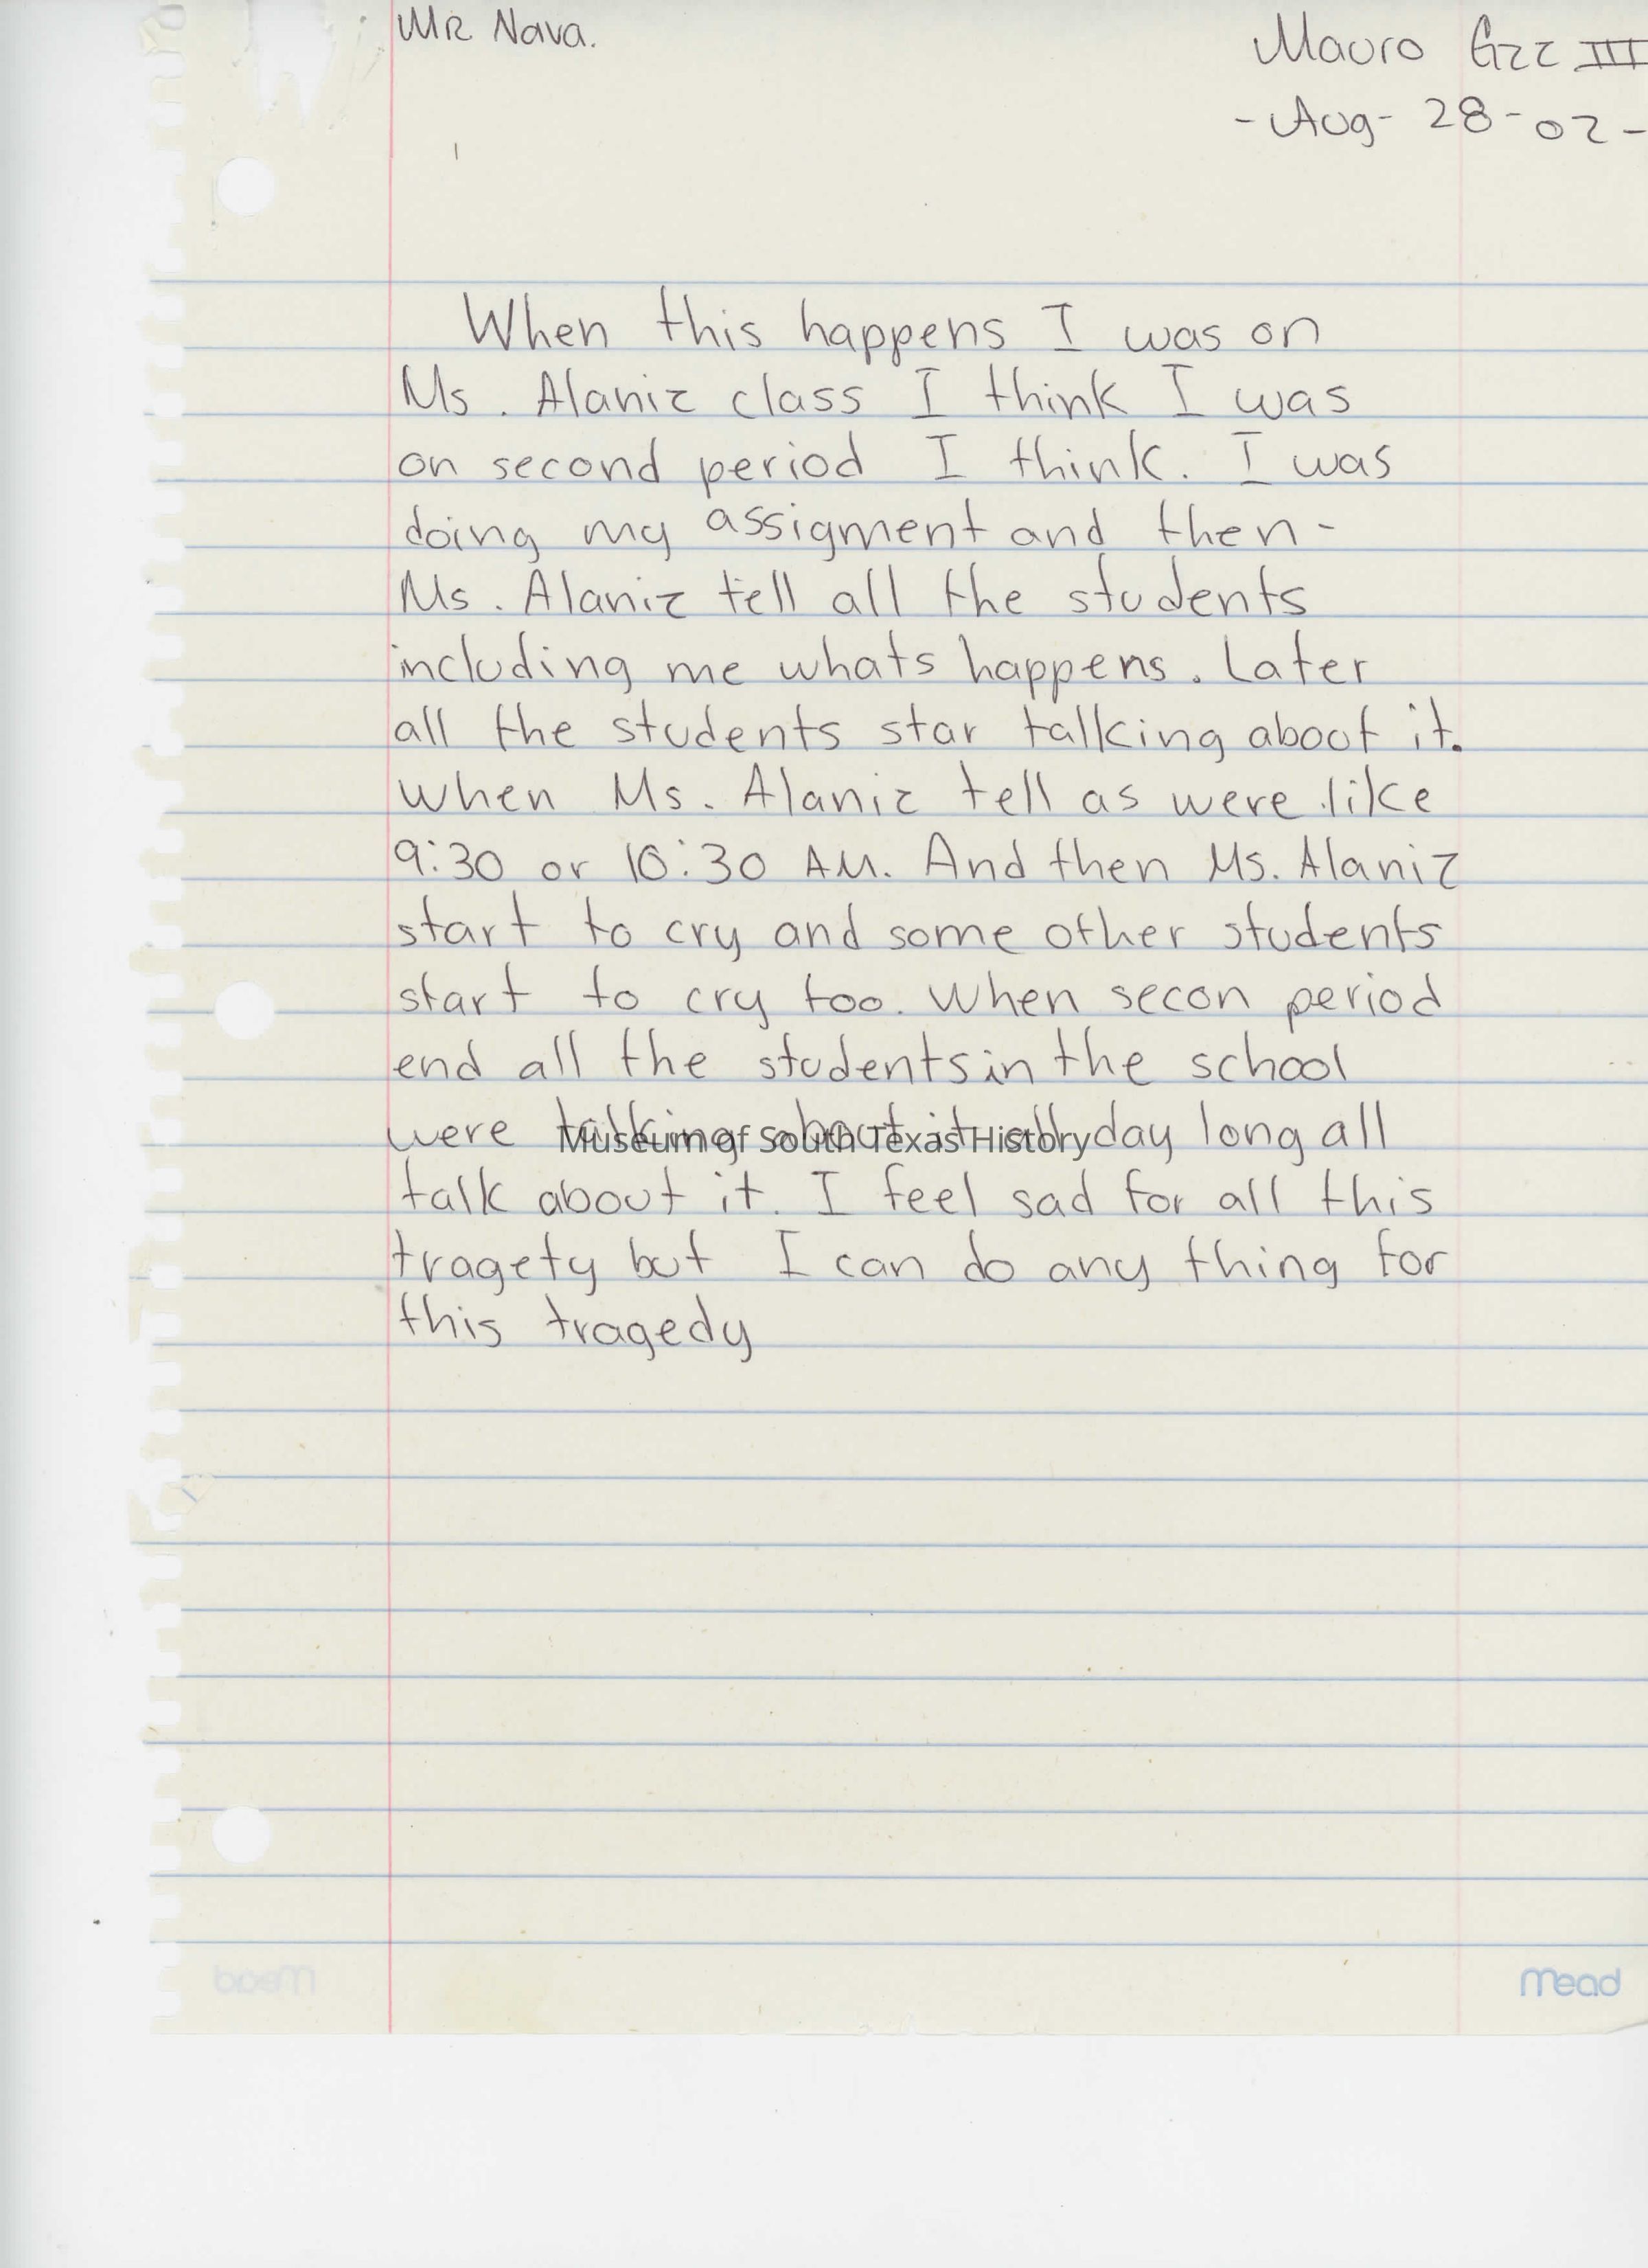 MR Nava.
Mauro Gzz III
-Aug- 28-02-
When this happens I was on
Ms. Alaniz class I think I was
on second period I think. I was
doing my assigment and then-
Ms. Alaniz tell all the students
including me whats happens. Later
all the students star talking about it.
When Ms. Alaniz tell as were like
9:30 or 10:30 AM. And then Ms. Alaniz
start to cry and some other students
start to cry too. When secon period
end all the students in the school
were talking about it all day long all
Museum of South Texas History
talk about it. I feel sad for all this
tragety but I can do any thing for
this tragedy
mead